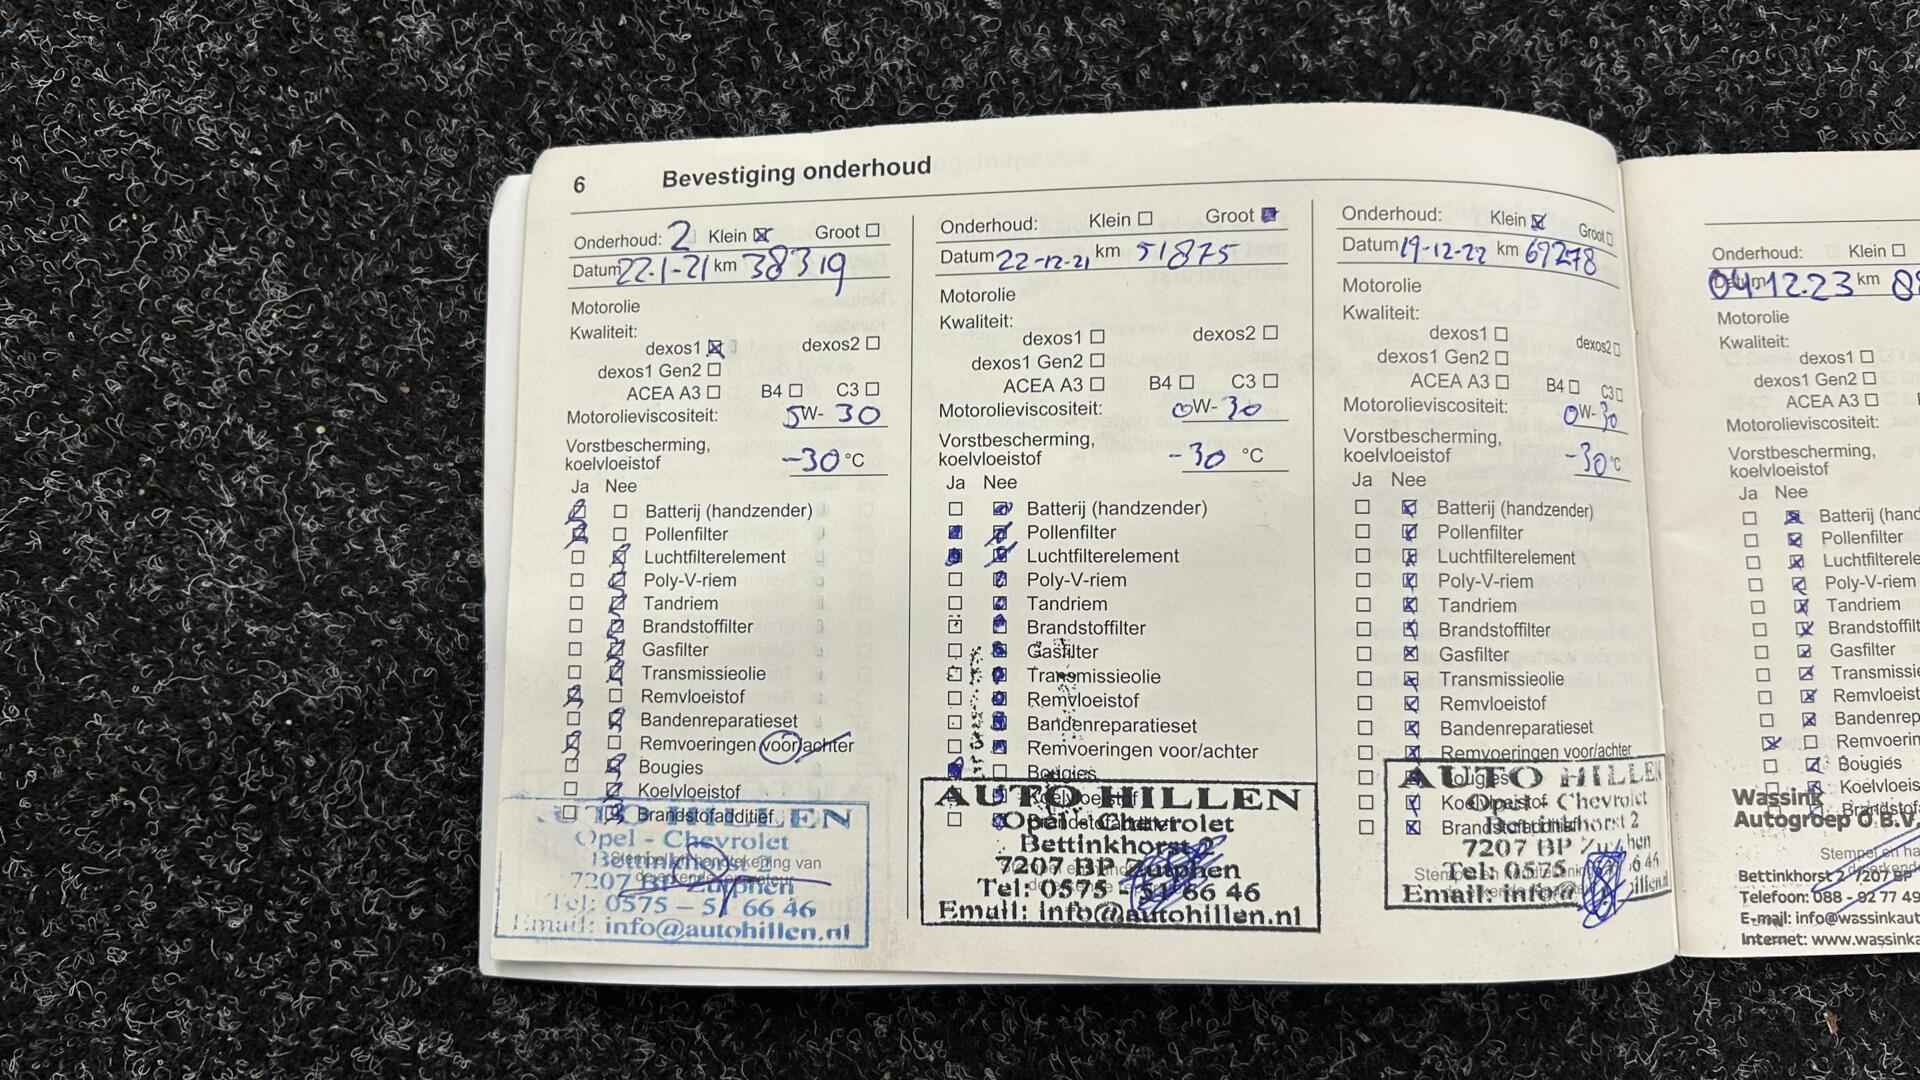 6 Bevestiging onderhoud
Onderhoud: 2 Klein Groot
Datum 22-1-21 km 38319
Motorolie
Kwaliteit:
dexos1 dexos2
dexos1 Gen2
ACEA A3 B4 C3
Motorolieviscositeit: 5W-30
Vorstbescherming,
koelvloeistof -30 °C
Ja Nee
Batterij (handzender)
Pollenfilter
Luchtfilterelement
Poly-V-riem
Tandriem
Brandstoffilter
Gasfilter
Transmissieolie
Remvloeistof
Bandenreparatieset
Remvoeringen voor/achter
Bougies
Koelvloeistof
Brandstofadditief
AUTO HILLEN
Opel - Chevrolet
Bettinkhorst 2
7207 BP Zutphen
Tel: 0575 - 51 66 46
Email: info@autohillen.nl
Onderhoud: Klein Groot
Datum 22-12-21 km 51875
Motorolie
Kwaliteit:
dexos1 dexos2
dexos1 Gen2
ACEA A3 B4 C3
Motorolieviscositeit: 0W-30
Vorstbescherming,
koelvloeistof -30 °C
Ja Nee
Batterij (handzender)
Pollenfilter
Luchtfilterelement
Poly-V-riem
Tandriem
Brandstoffilter
Gasfilter
Transmissieolie
Remvloeistof
Bandenreparatieset
Remvoeringen voor/achter
Bougies
Koelvloeistof
Brandstofadditief
AUTO HILLEN
Opel - Chevrolet
Bettinkhorst 2
7207 BP Zutphen
Tel: 0575 - 51 66 46
Email: info@autohillen.nl
Onderhoud: Klein Groot
Datum 19-12-22 km 69278
Motorolie
Kwaliteit:
dexos1 dexos2
dexos1 Gen2
ACEA A3 B4 C3
Motorolieviscositeit: 0W-30
Vorstbescherming,
koelvloeistof -30 °C
Ja Nee
Batterij (handzender)
Pollenfilter
Luchtfilterelement
Poly-V-riem
Tandriem
Brandstoffilter
Gasfilter
Transmissieolie
Remvloeistof
Bandenreparatieset
Remvoeringen voor/achter
Bougies
Koelvloeistof
Brandstofadditief
AUTO HILLEN
Opel - Chevrolet
Bettinkhorst 2
7207 BP Zutphen
Tel: 0575
Email: info@
Onderhoud: Klein
Datum 04-12-23 km
Motorolie
Kwaliteit:
dexos1
dexos1 Gen2
ACEA A3
Motorolieviscositeit:
Vorstbescherming,
koelvloeistof
Ja Nee
Batterij (hand
Pollenfilter
Luchtfiltere
Poly-V-riem
Tandriem
Brandstoffilt
Gasfilter
Transmissie
Remvloeist
Bandenrep
Remvoerin
Bougies
Koelvloeis
Brandstofa
Wassink
Autogroep O.B.V.
Stempel en ha
Bettinkhorst 2, 7207 BP
Telefoon: 088 - 92 77 49
E-mail: info@wassinkaut
Internet: www.wassinka